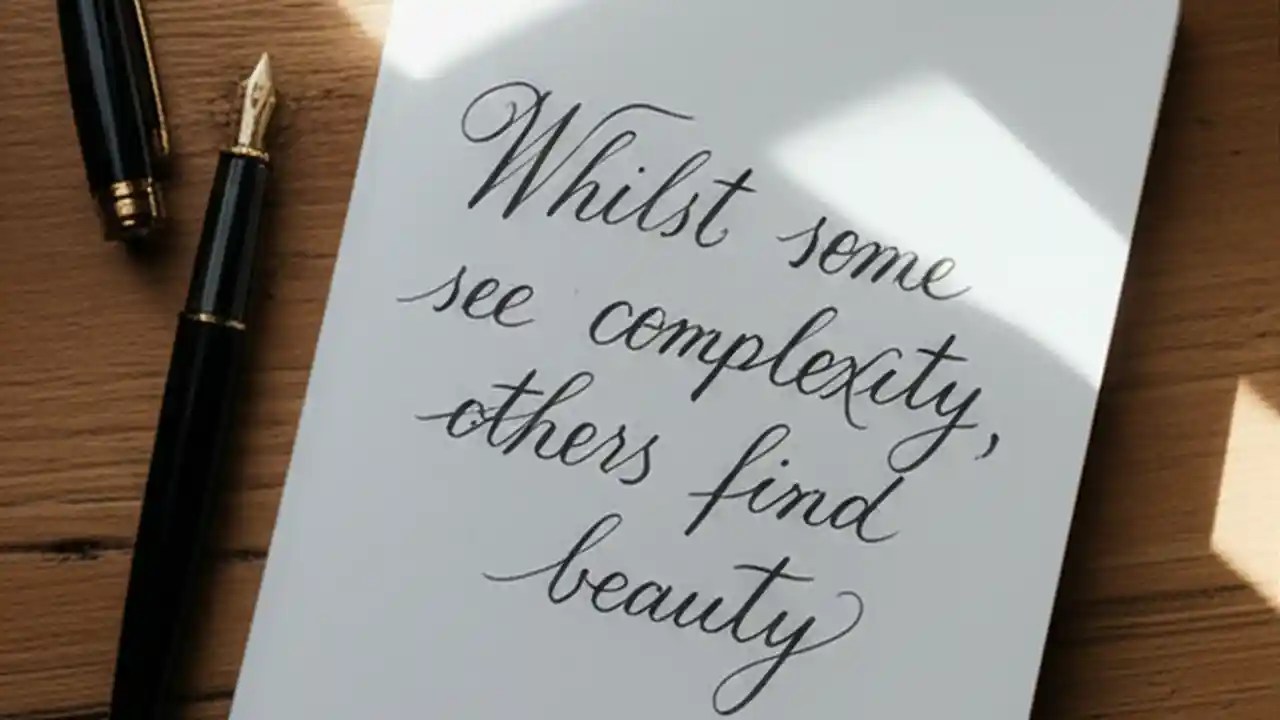 Whilst some
see complexity,
others find
beauty